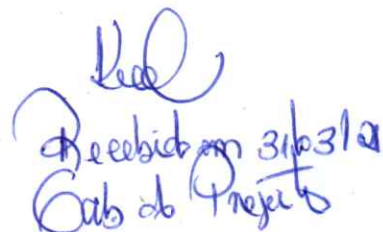 Recebido em 31/03/21
Gab do Prefeito